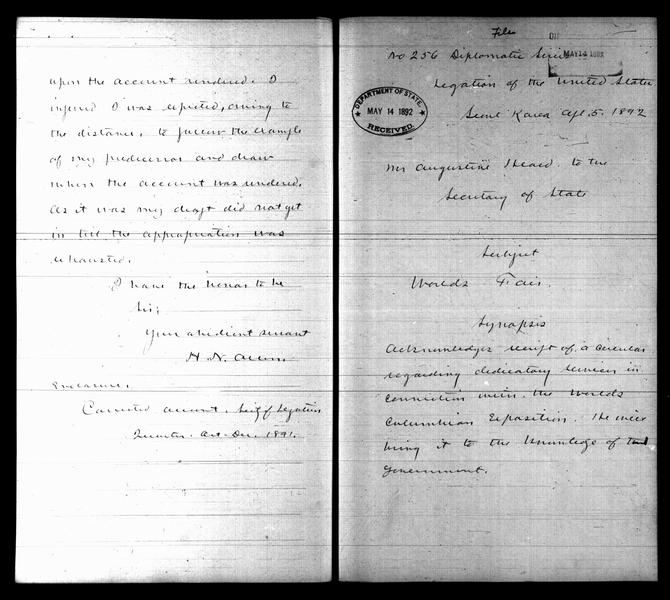 upon the account rendered. I
inferred I was expected, owing to
the distance, to follow the example
of my predecessor and draw
when the account was rendered.
As it was my draft did not get
in till the appropriation was
exhausted.
I have the honor to be
Sir;
Your obedient servant
H. N. Allen.
Enclosure.
Corrected account. Secy of Legation
Quarter. Oct-Dec. 1891.
File
No 256 Diplomatic Series
MAY 14 1892
Legation of the United States
Seoul Korea Apl. 5. 1892
DEPARTMENT OF STATE.
MAY 14 1892
RECEIVED.
Mr Augustine Heard to the
Secretary of State
Subject
Worlds Fair.
Synopsis
Acknowledges receipt of a circular
regarding dedicatory services in
connection with the Worlds
Columbian Exposition. He will
bring it to the knowledge of
Government.